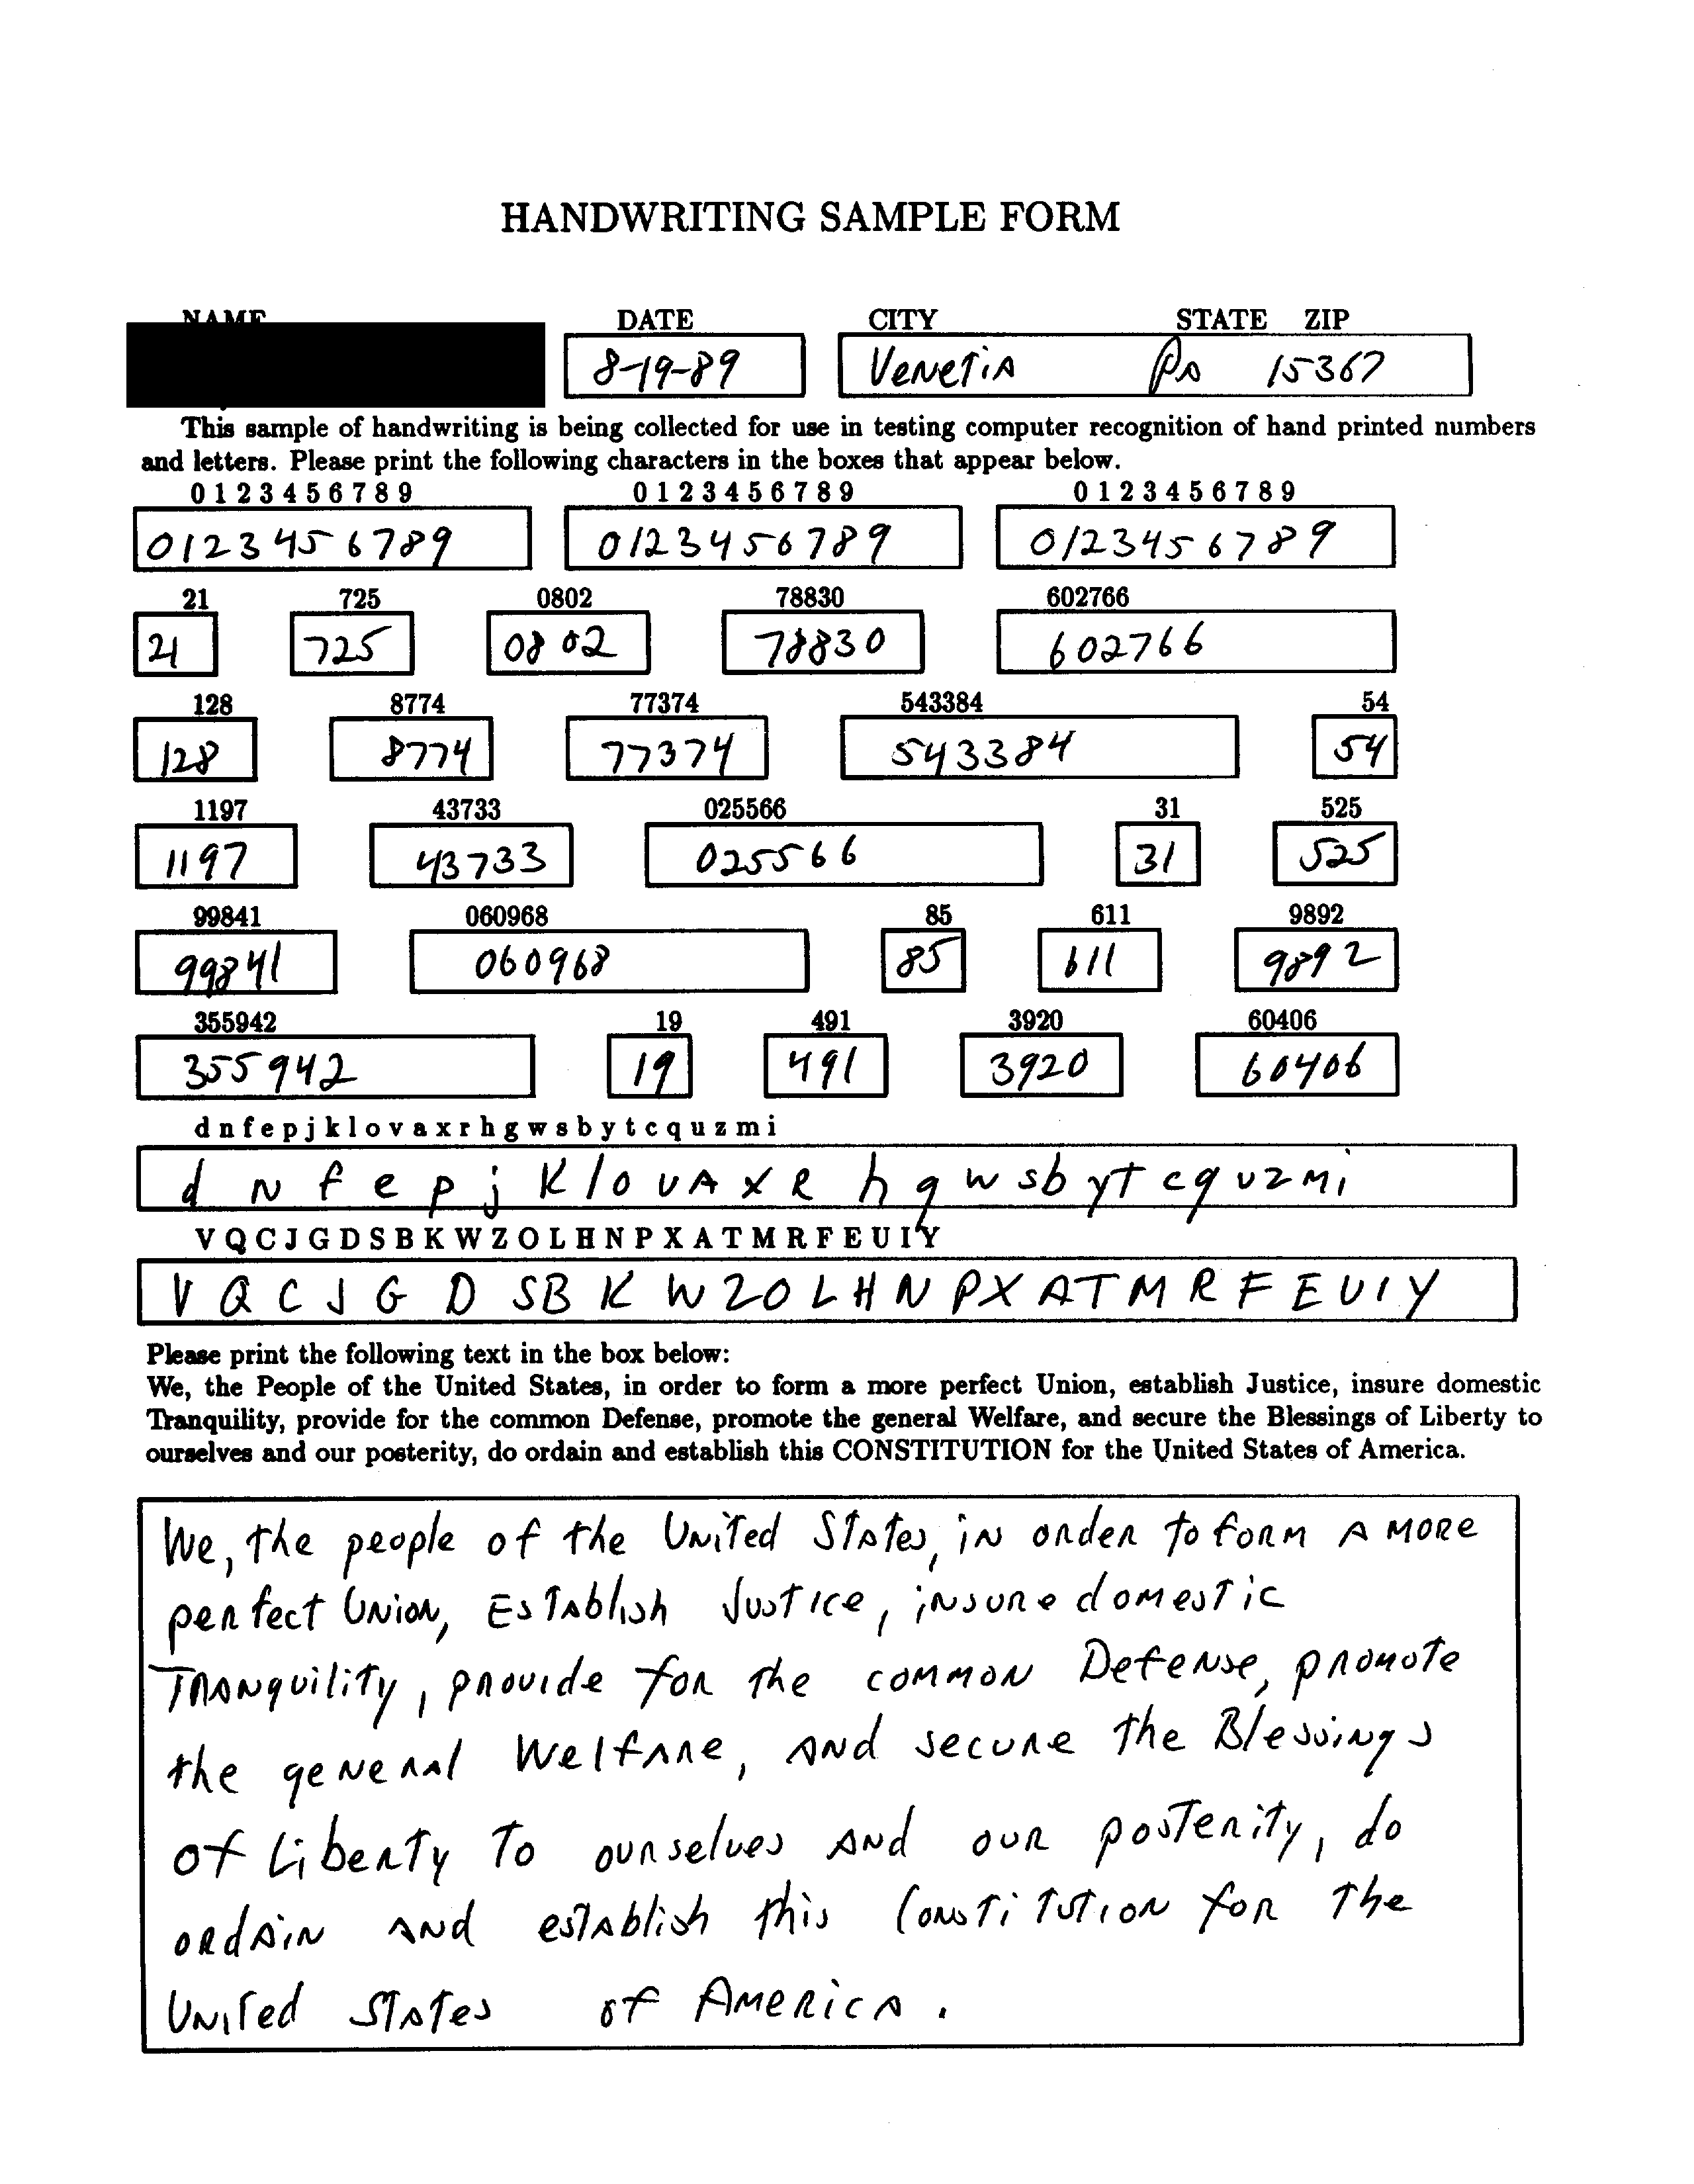 HANDWRITING SAMPLE FORM
NAME DATE CITY STATE ZIP
8-19-89 Venetia Pa 15367
This sample of handwriting is being collected for use in testing computer recognition of hand printed numbers
and letters. Please print the following characters in the boxes that appear below.
0 1 2 3 4 5 6 7 8 9 0 1 2 3 4 5 6 7 8 9 0 1 2 3 4 5 6 7 8 9
0123456789 0123456789 0123456789
21 725 0802 78830 602766
21 725 0802 78830 602766
128 8774 77374 543384 54
128 8774 77374 543384 54
1197 43733 025566 31 525
1197 43733 025566 31 525
99841 060968 85 611 9892
99841 060968 85 611 9892
355942 19 491 3920 60406
355942 19 491 3920 60406
d n f e p j k l o v a x r h g w s b y t c q u z m i
d N f e p j K l o v A X R h g w s b y t c q u z M i
V Q C J G D S B K W Z O L H N P X A T M R F E U I Y
V Q C J G D S B K W Z O L H N P X A T M R F E U I Y
Please print the following text in the box below:
We, the People of the United States, in order to form a more perfect Union, establish Justice, insure domestic
Tranquility, provide for the common Defense, promote the general Welfare, and secure the Blessings of Liberty to
ourselves and our posterity, do ordain and establish this CONSTITUTION for the United States of America.
We, the people of the United States, in order to form A MORE
perfect Union, Establish Justice, insure domestic
Tranquility, provide for the common Defense, promote
the general Welfare, and secure the Blessings
of Liberty to ourselves and our posterity, do
ordain and establish this Constitution for the
United States of America.